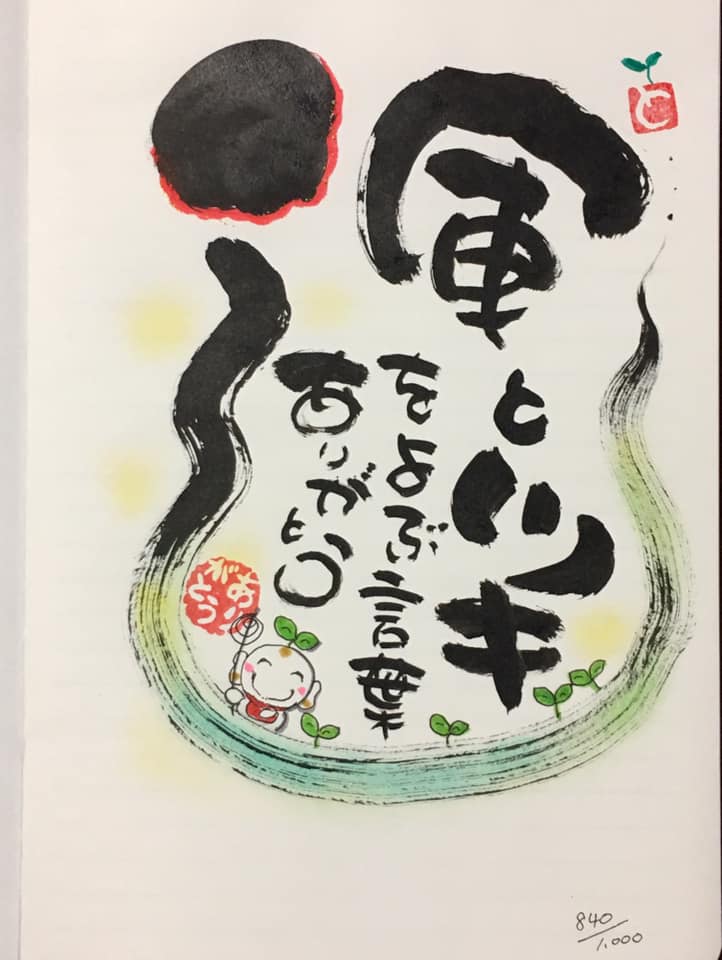 運とツキ
をよぶ言葉
ありがとう
ありがとう
840/1,000